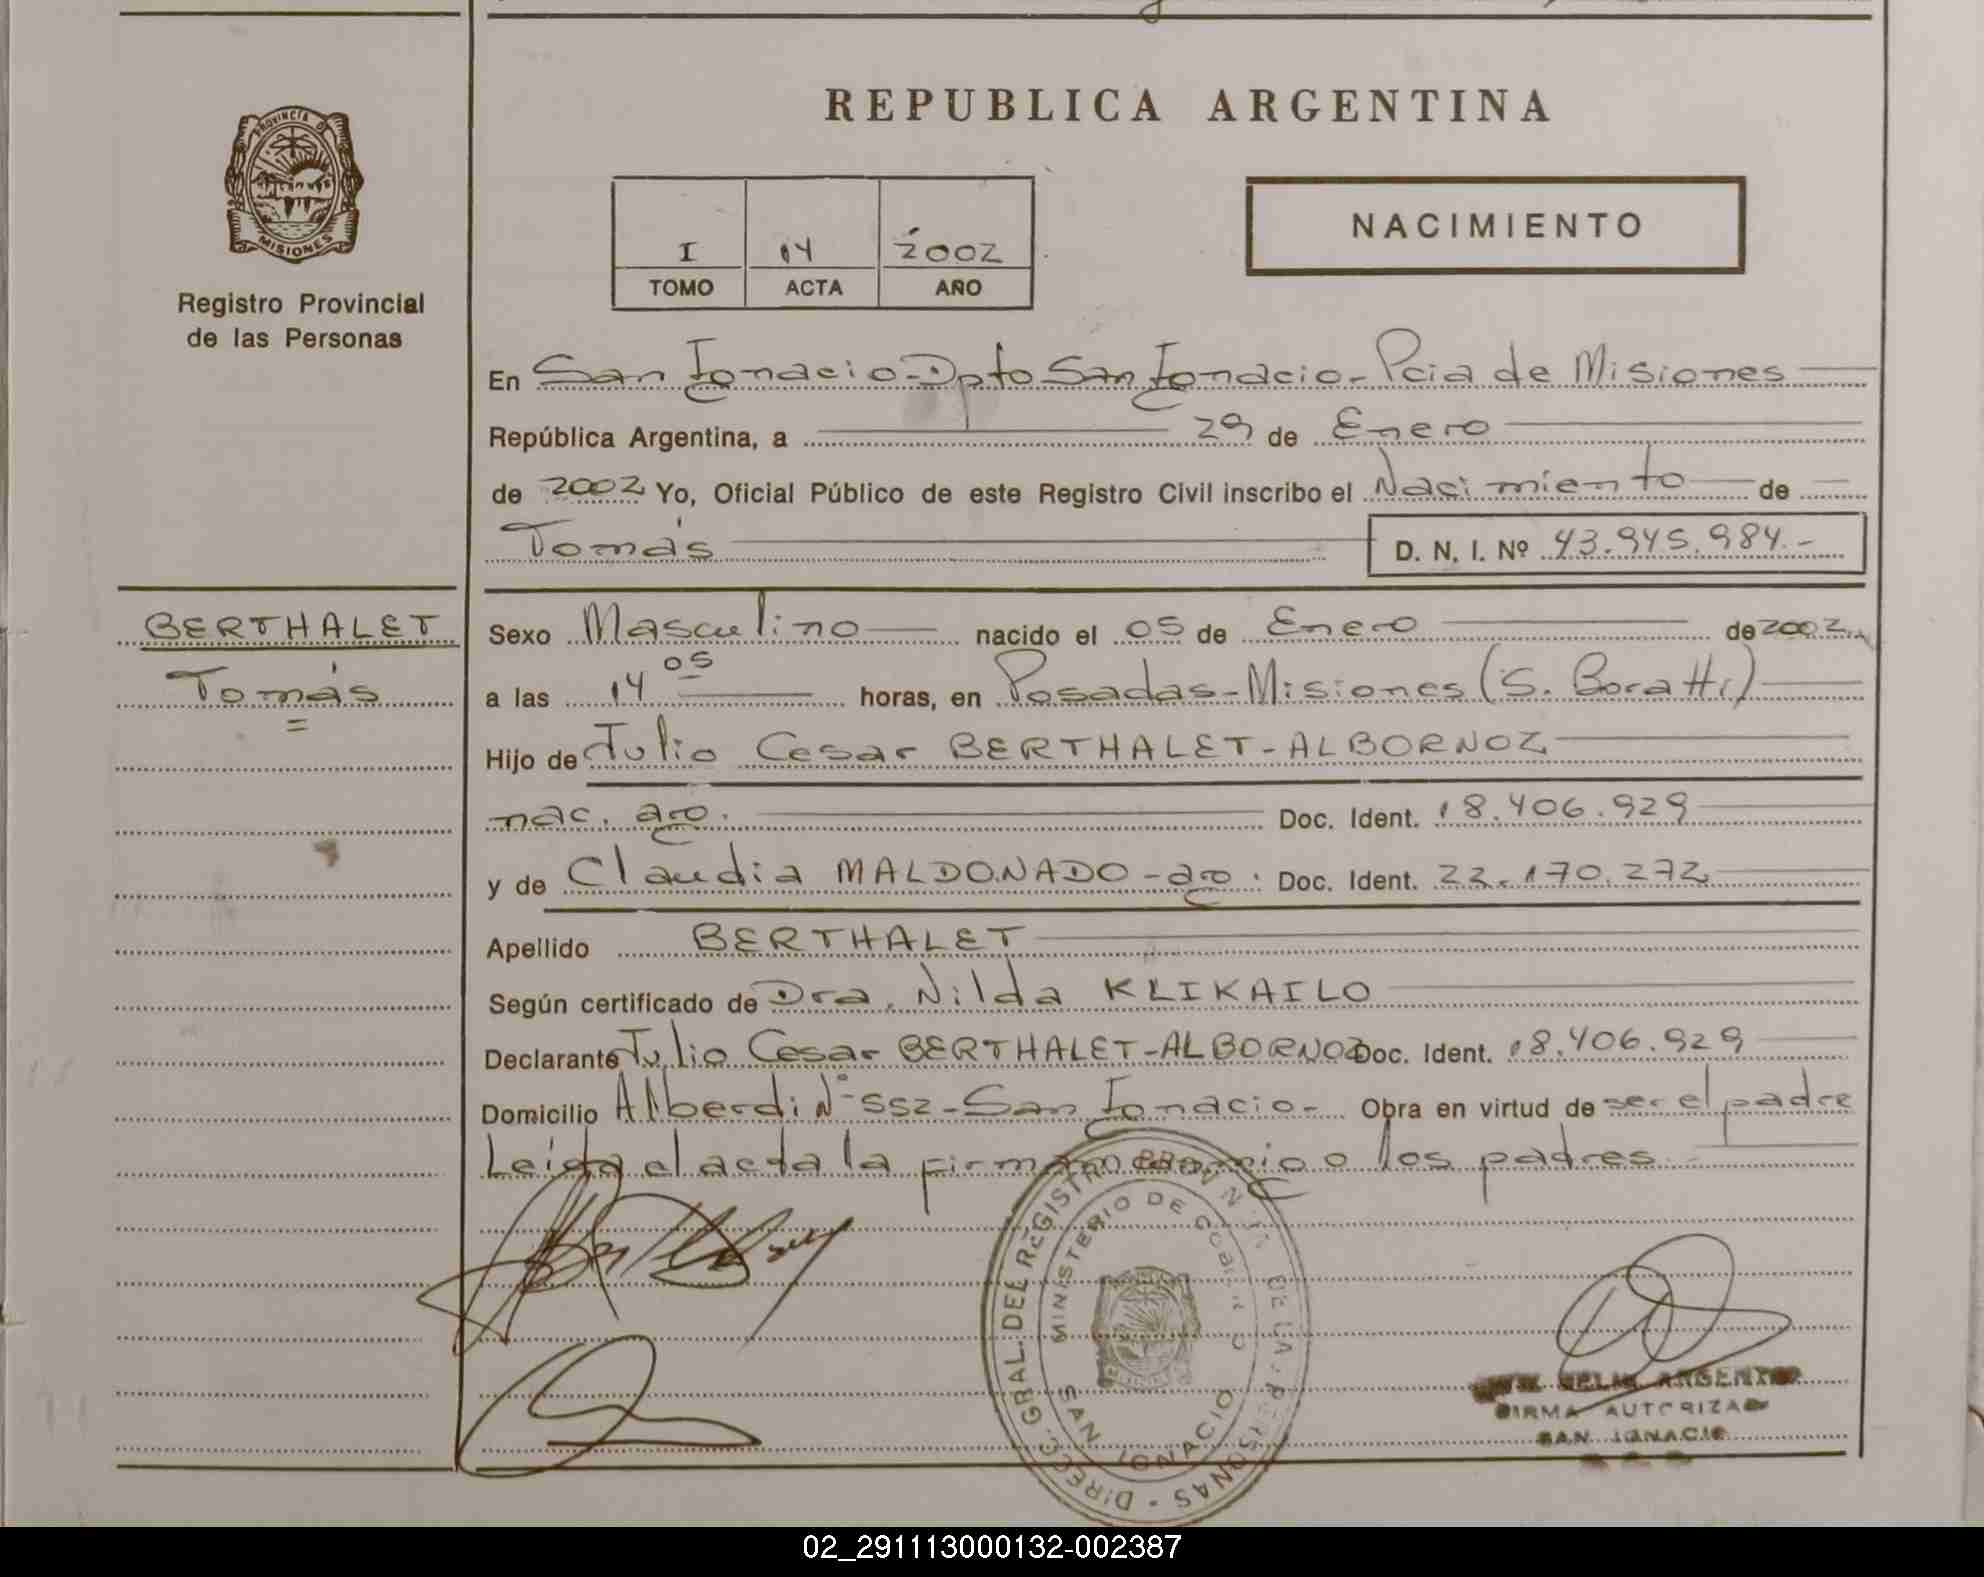 REPUBLICA ARGENTINA
PROVINCIA DE
MISIONES
Registro Provincial
de las Personas
I 14 2002
TOMO ACTA AÑO
NACIMIENTO
En San Ignacio - Dpto San Ignacio - Pcia de Misiones
República Argentina, a 29 de Enero
de 2002 Yo, Oficial Público de este Registro Civil inscribo el Nacimiento de
Tomás D. N. I. Nº 43.945.984.-
BERTHALET
Tomás
Sexo Masculino nacido el 05 de Enero de 2002
a las 14 05 horas, en Posadas - Misiones (S. Boratti)
Hijo de Julio Cesar BERTHALET - ALBORNOZ
nac. arg. Doc. Ident. 18.406.929
y de Claudia MALDONADO - arg. Doc. Ident. 22.170.272
Apellido BERTHALET
Según certificado de Dra. Nilda KLIKAILO
Declarante Julio Cesar BERTHALET - ALBORNOZ Doc. Ident. 18.406.929
Domicilio Alberdi Nº 552 - San Ignacio - Obra en virtud de ser el padre
Leída el acta la firman conmigo los padres
DIRECC. GRAL. DEL REGISTRO DE LAS PERSONAS
MINISTERIO DE GOBIERNO
SAN IGNACIO
ARGENTINO
FIRMA AUTORIZADA
SAN IGNACIO
02_291113000132-002387